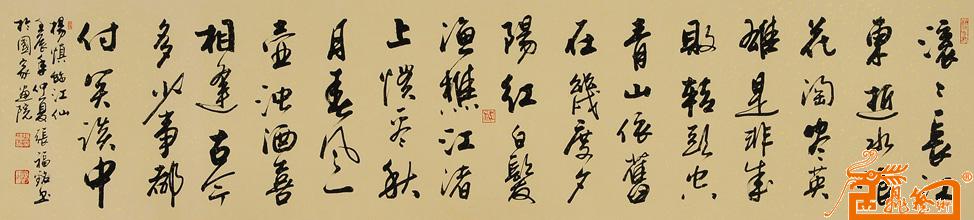 滚〻長江
東逝水浪
花淘尽英
雄是非成
敗转头空
青山依舊
在幾度夕
陽红白髮
渔樵江渚
上惯看秋
月春风一
壶浊酒喜
相逢古今
多少事都
付笑谈中
楊慎临江仙
壬辰年仲夏張福
於國家画院